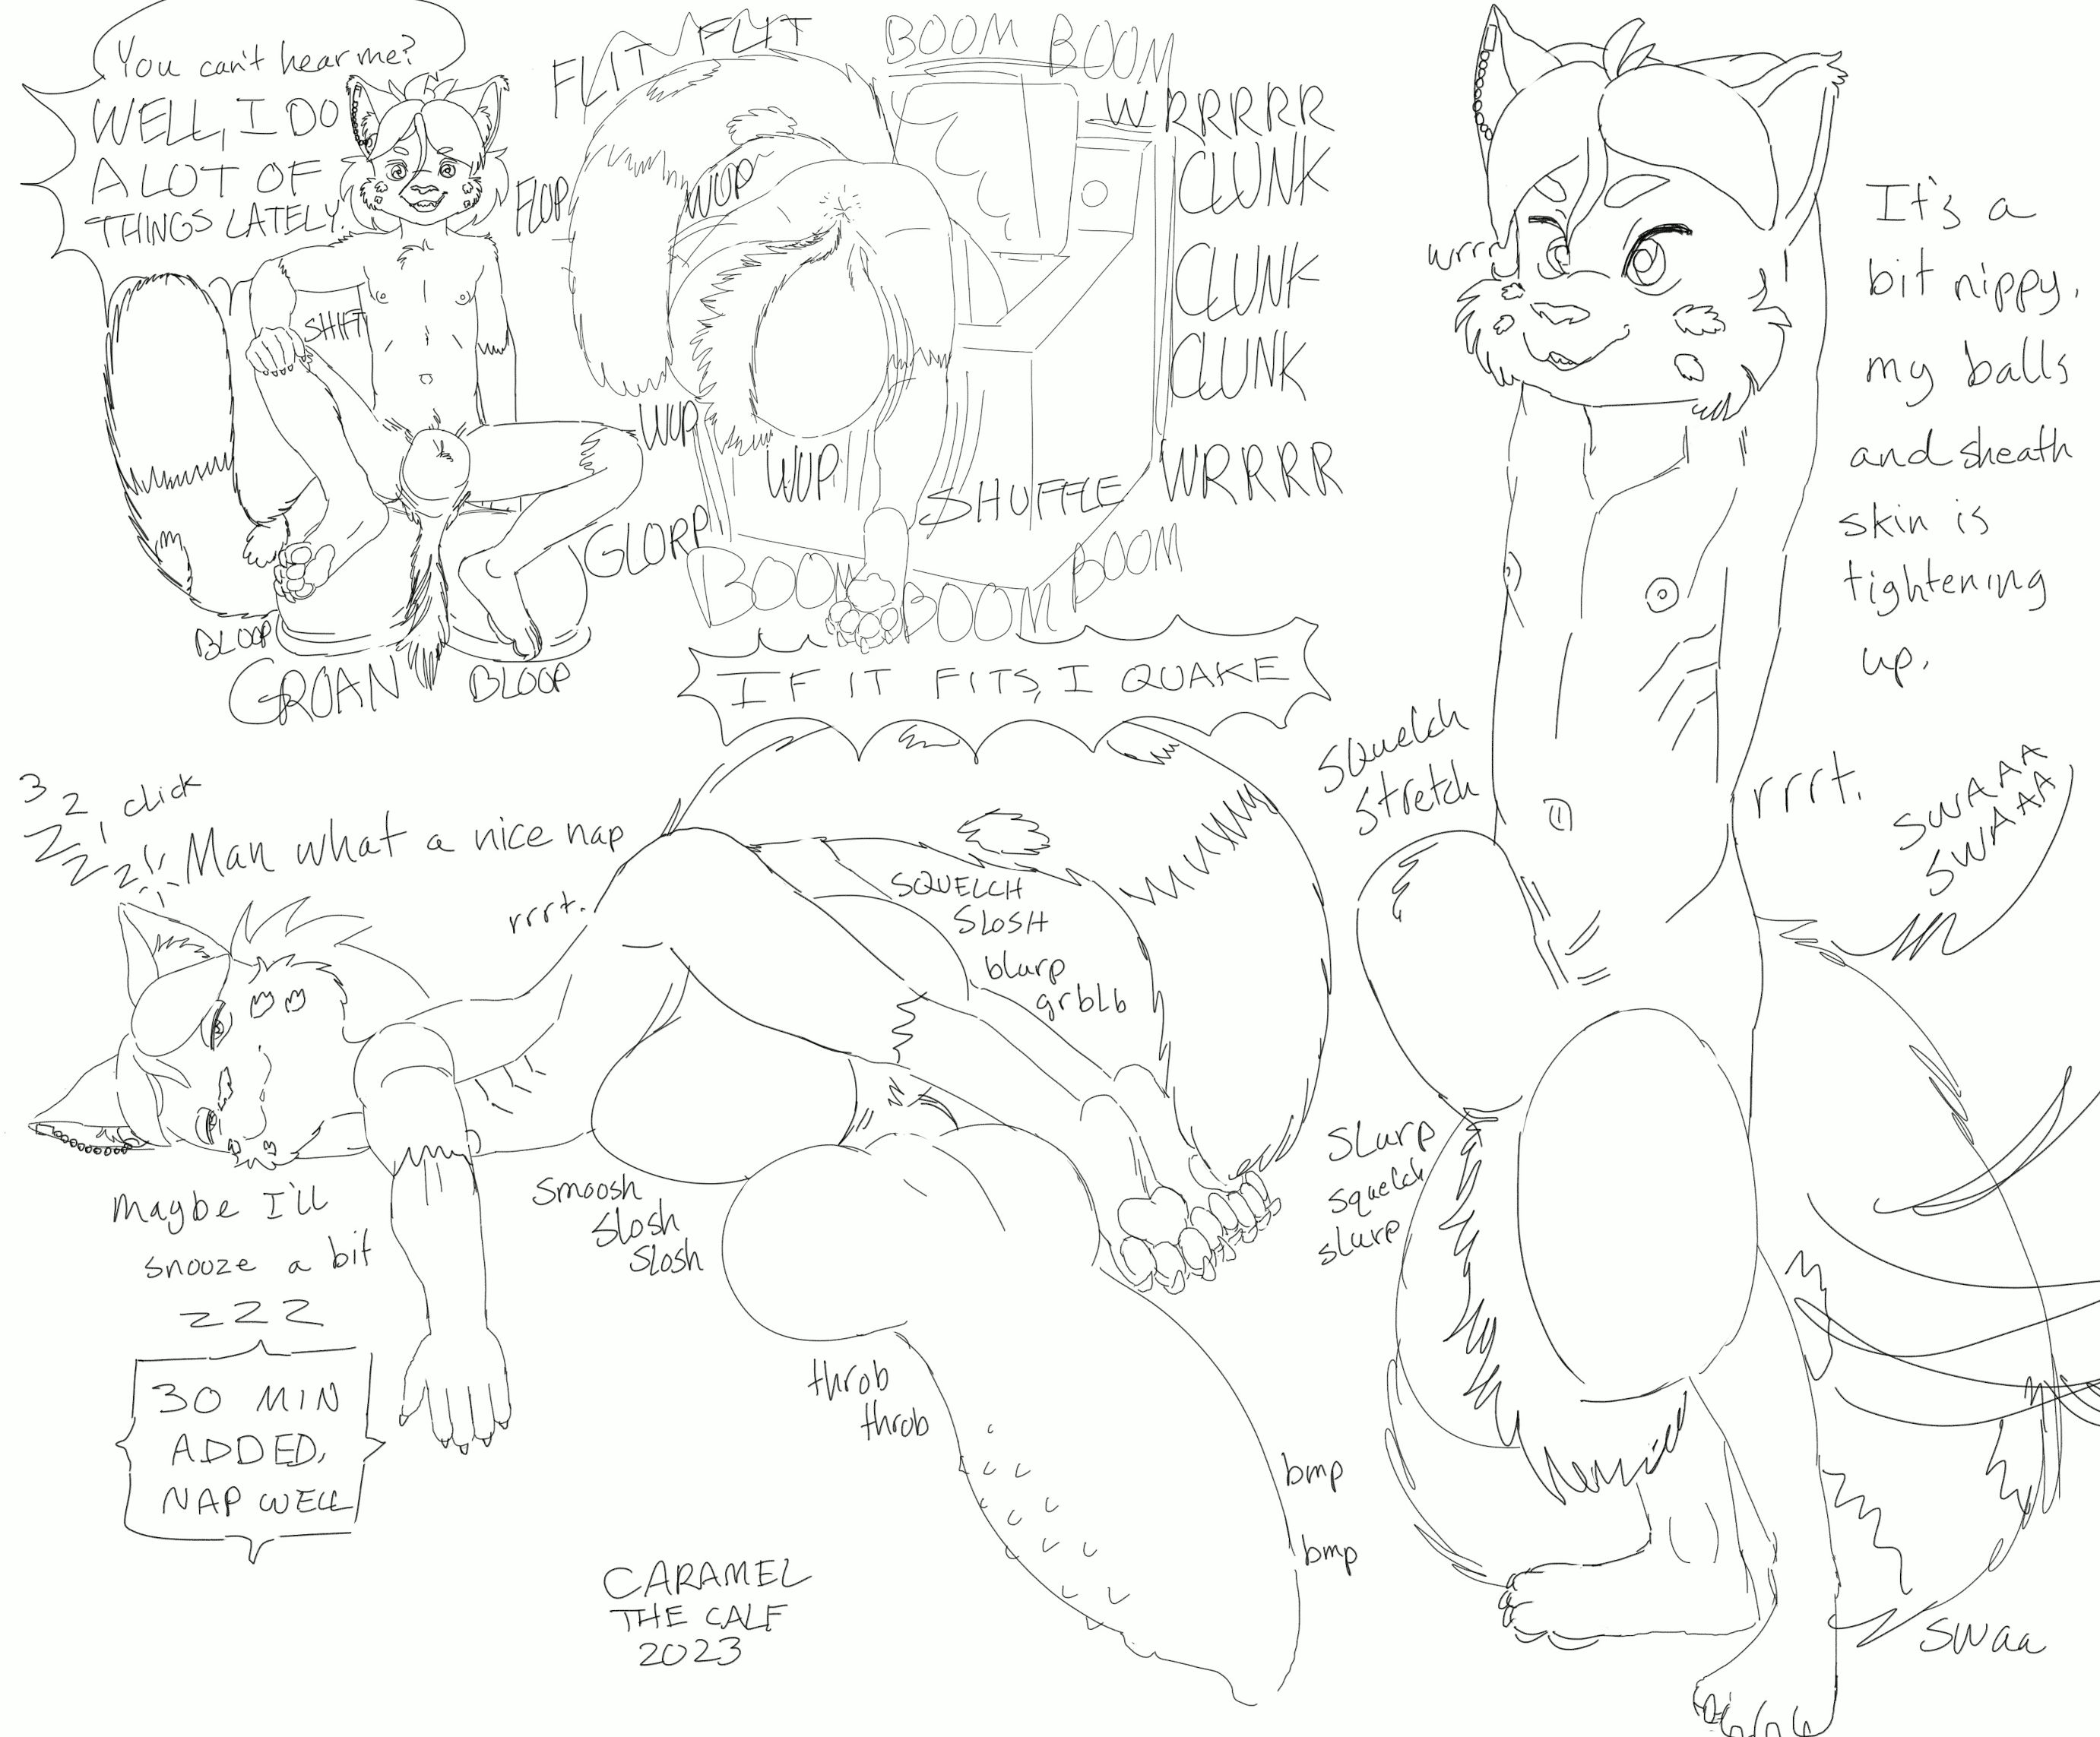 You can't hear me?
WELL, I DO
A LOT OF
THINGS LATELY.
SHIFT
BLOOP
GROAN
BLOOP
GLORP
FLIT FLIT
FLOP
WOP
WOP
WOP
BOOM BOOM
WRRRRR
CLUNK
CLUNK
CLUNK
WRRRR
SHUFFLE
BOOM
BOOM
BOOM
IF IT FITS, I QUAKE
wrrr
It's a
bit nippy,
my balls
and sheath
skin is
tightening
up.
Squelch
Stretch
rrrt.
SWAAA
SWAAA
SLurp
squelch
slurp
swaa
3 2 1 click
Z Z Z
Man what a nice nap
rrrt.
SQUELCH
SLOSH
blurp
grblb
Maybe I'll
snooze a bit
zzz
30 MIN
ADDED,
NAP WELL
Smoosh
Slosh
Slosh
throb
throb
bmp
bmp
CARAMEL
THE CALF
2023